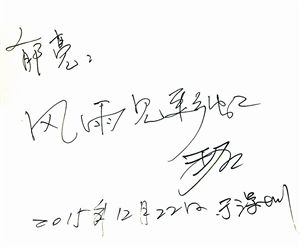 郁亮:
风雨见彩虹
2015年12月22日 于深圳